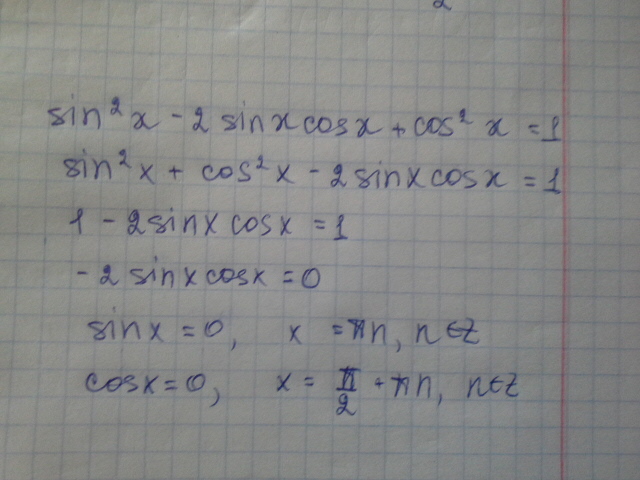 2
sin²x - 2 sinx cosx + cos² x = 1
sin²x + cos²x - 2sinx cosx = 1
1 - 2sinx cosx = 1
- 2 sinx cosx = 0
sinx = 0, x = πn, n∈Z
cosx = 0, x = π/2 + πn, n∈Z